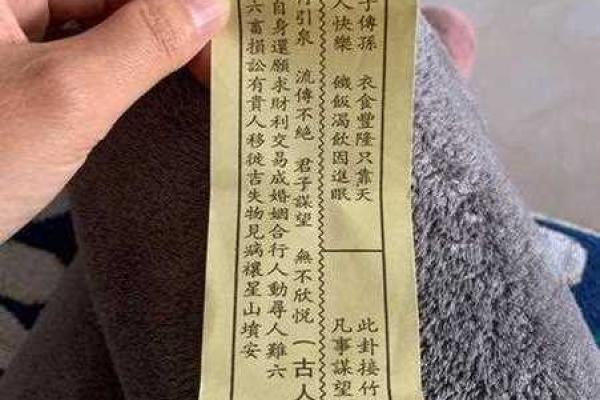 子傳孫 衣食豐隆只靠天
人快樂 饑飯渴飲因進眠
此卦接竹
凡事謀望
引泉 流傳不絕 君子謀望 無不欣悅(古人
自身還願求財利交易成婚姻合行人動尋人難六
六畜損訟有貴人移徙吉失物見病禳星山墳安